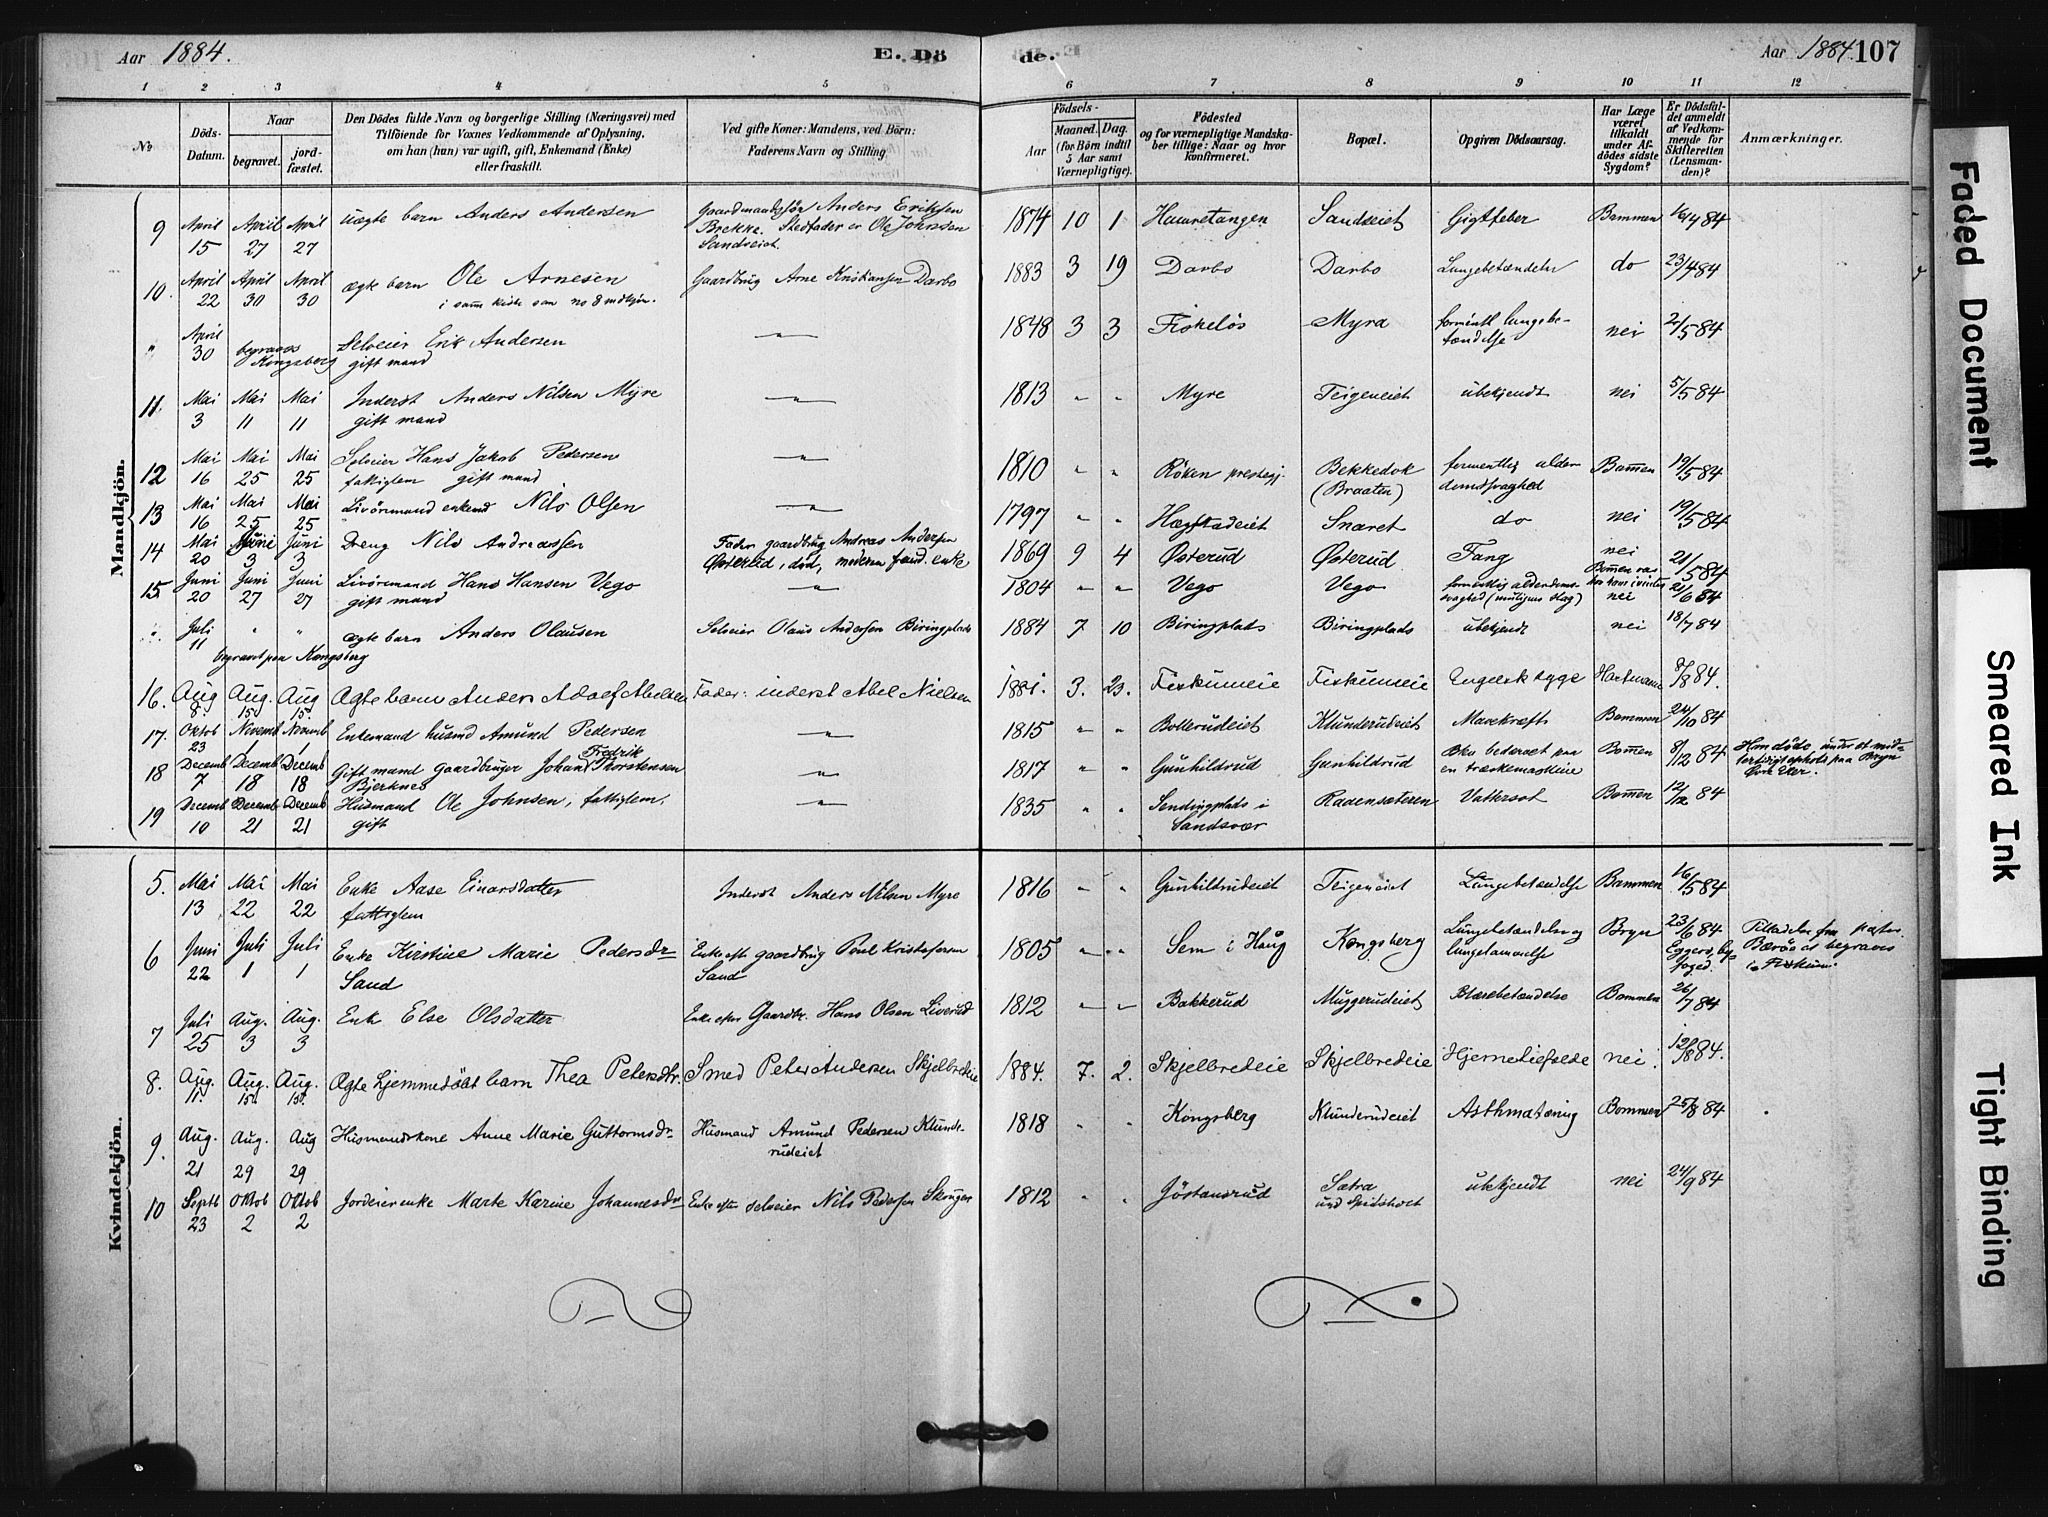 Aar 1884. E. Dö
de. Aar 1884. 107
1 2 3 4 5
6 7 8 9 10 11 12
No
Döds-Datum.
Naar
begravet. jord-fæstet.
Den Dödes fulde Navn og borgerlige Stilling (Næringsvei) med
Tilföiende for Voxnes Vedkommende af Oplysning,
om han (hun) var ugift, gift, Enkemand (Enke)
eller fraskilt.
Ved gifte Koner: Mandens, ved Börn:
Faderens Navn og Stilling.
Födsels-
Aar Maaned. Dag.
(for Börn indtil
5 Aar samt
Værnepligtige).
Födested
og for værnepligtige Mandska-
ber tillige: Naar og hvor
konfirmeret.
Bopæl.
Opgiven Dödsaarsag.
Har Læge
været
tilkaldt
under Af-
dödes sidste
Sygdom?
Er Dödsfal-
det anmeldt
af Vedkom-
mende for
Skifteretten
(Lensman-
den)?
Anmærkninger.
Mandkjön.
9 April 15 April 27 April 27 uægte barn Anders Andersen Gaardmandssön Anders Eriksen
Brekke. Stedfader er Ole Johnsen
Sandseiet. 1874 10 1 Hauretangen Sandseiet Gigtfeber Bommen 16/4 84
10. April 22 April 30 April 30 ægte barn Ole Arnesen Gaardbrug Arne Kristiansen Darbo 1883 3 19 Darbo Darbo Lungebetændelse do 23/4 84
i samme kiste som no 8 mdkjön.
" April 30 begraves Kongsberg Selveier Erik Andersen
gift mand — " — 1848 3 3 Fiskelös Myra formentl lungebe-
tændelse nei 2/5 84
11. Mai 3 Mai 11 Mai 11 Inderst Anders Nilsen Myre
gift mand — " — 1813 " " Myre Teigeneiet ubekjendt nei 5/5 84
12 Mai 16 Mai 25 Mai 25 Selveier Hans Jakob Pedersen
fattiglem gift mand — " — 1810 " " Röken prestegj. Bekkedok
(Braaten) formentlig alder
domssvaghed Bommen 19/5 84
13 Mai 16 Mai 25 Mai 25 Livörsmand enkemd Nils Olsen — " — 1797 " " Hægstadeiet Snaret do nei 19/5 84
14 Mai 20 Juni 3 Juni 3 Dreng Nils Andreassen Fader gaardbrug Andreas Andersen
Østerud, död, moderen enke 1869 9 4 Østerud Østerud Tang nei 21/5 84
15. Juni 20 Juni 27 Juni 27 Livörsmand Hans Hansen Vego
gift mand — " — 1804 " " Vego Vego formentlig alderdoms-
svaghed (muligens slag) Bommen var
hos ham i vinter
nei 21/6 84
" Juli 11 " " ægte barn Anders Olausen Selveier Olaus Andersen Biringplads 1884 7 10 Biringplads Biringplads ubekjendt nei 18/7 84
begravet paa Kongsberg
16. Aug 8. Aug. 15. Aug 15. Ægte barn Anders Adolf Abelsen Fader: inderst Abel Nielsen 1881. 3. 23. Fiskumeie Fiskumeie Engelsk syge Hartmann 8/8 84.
17. Oktob 23 Novemb 1 Novemb 1 Enkemand husmd Amund Pedersen — " — 1815 " " Bollerudeiet Klunderudeiet Marekræft Bommen 24/10 84
18 Decemb 7 Decemb 18 Decemb 18 Gift mand gaardbruger Johan Fredrik Thorstensen
Bjerknes — " — 1817 " " Gunhildrud Gunhildrud Blev bedærvet paa
en træskemaskine Bommen 8/12 84 Han döde under et mid-
lertidigt ophold paa Bryn
Øvre Eker.
19 Decemb 10 Decemb 21 Decemb 21 Husmand Ole Johnsen, fattiglem,
gift — " — 1835 " " Sendingplads i
Sandsvær Raaensæteren Vattersot Bommen 12/12 84
Kvindekjön.
5. Mai 13 Mai 22 Mai 22 Enke Aase Einarsdatter
fattiglem Inderst Anders Nilsen Myre 1816 " " Gunhildrudeiet Teigeneiet Lungebetændelse Bommen 16/5 84
6 Juni 22 Juli 1 Juli 1 Enke Kirstine Marie Pedersdr
Sand Enke eft gaardbrug Poul Kristofersen
Sand 1805 " " Sem i Haug Kongsberg Lungebetændelse og
lungelammelse Bryn 23/6 84
Eggers, by-
foged. Tilladelse fra pastor
Bærøe at begraves
i Fiskum.
7 Juli 25 Aug. 3 Aug. 3 Enke Else Olsdatter Enke efter Gaardbr. Hans Olsen Liverud 1812 " " Bakkerud Muggerudeiet Blærebetændelse Bommen 26/7 84
8. Aug. 11. Aug. 15. Aug. 15. Ægte hjemmedöbt barn Thea Petersdtr. Smed Peter Andersen Skjelbredeie 1884. 7. 2. Skjelbredeie Skjelbredeie nei. 12/8 84.
9. Aug. 21 Aug. 29 Aug 29 Husmandskone Anne Marie Guttormsdr Husmand Amund Pedersen Klunde-
rudeiet 1818 " " Kongsberg Klunderudeiet Asthmatæring Bommen 25/8 84
10 Septb 23 Oktob 2 Oktob 2 Jordeier enke Marte Karine Johannesdr Enke efter selveier Nils Pedersen 1812 " " Göstansrud Sætra ubekjendt nei 24/9 84
Faded Document
Smeared Ink
Tight Binding